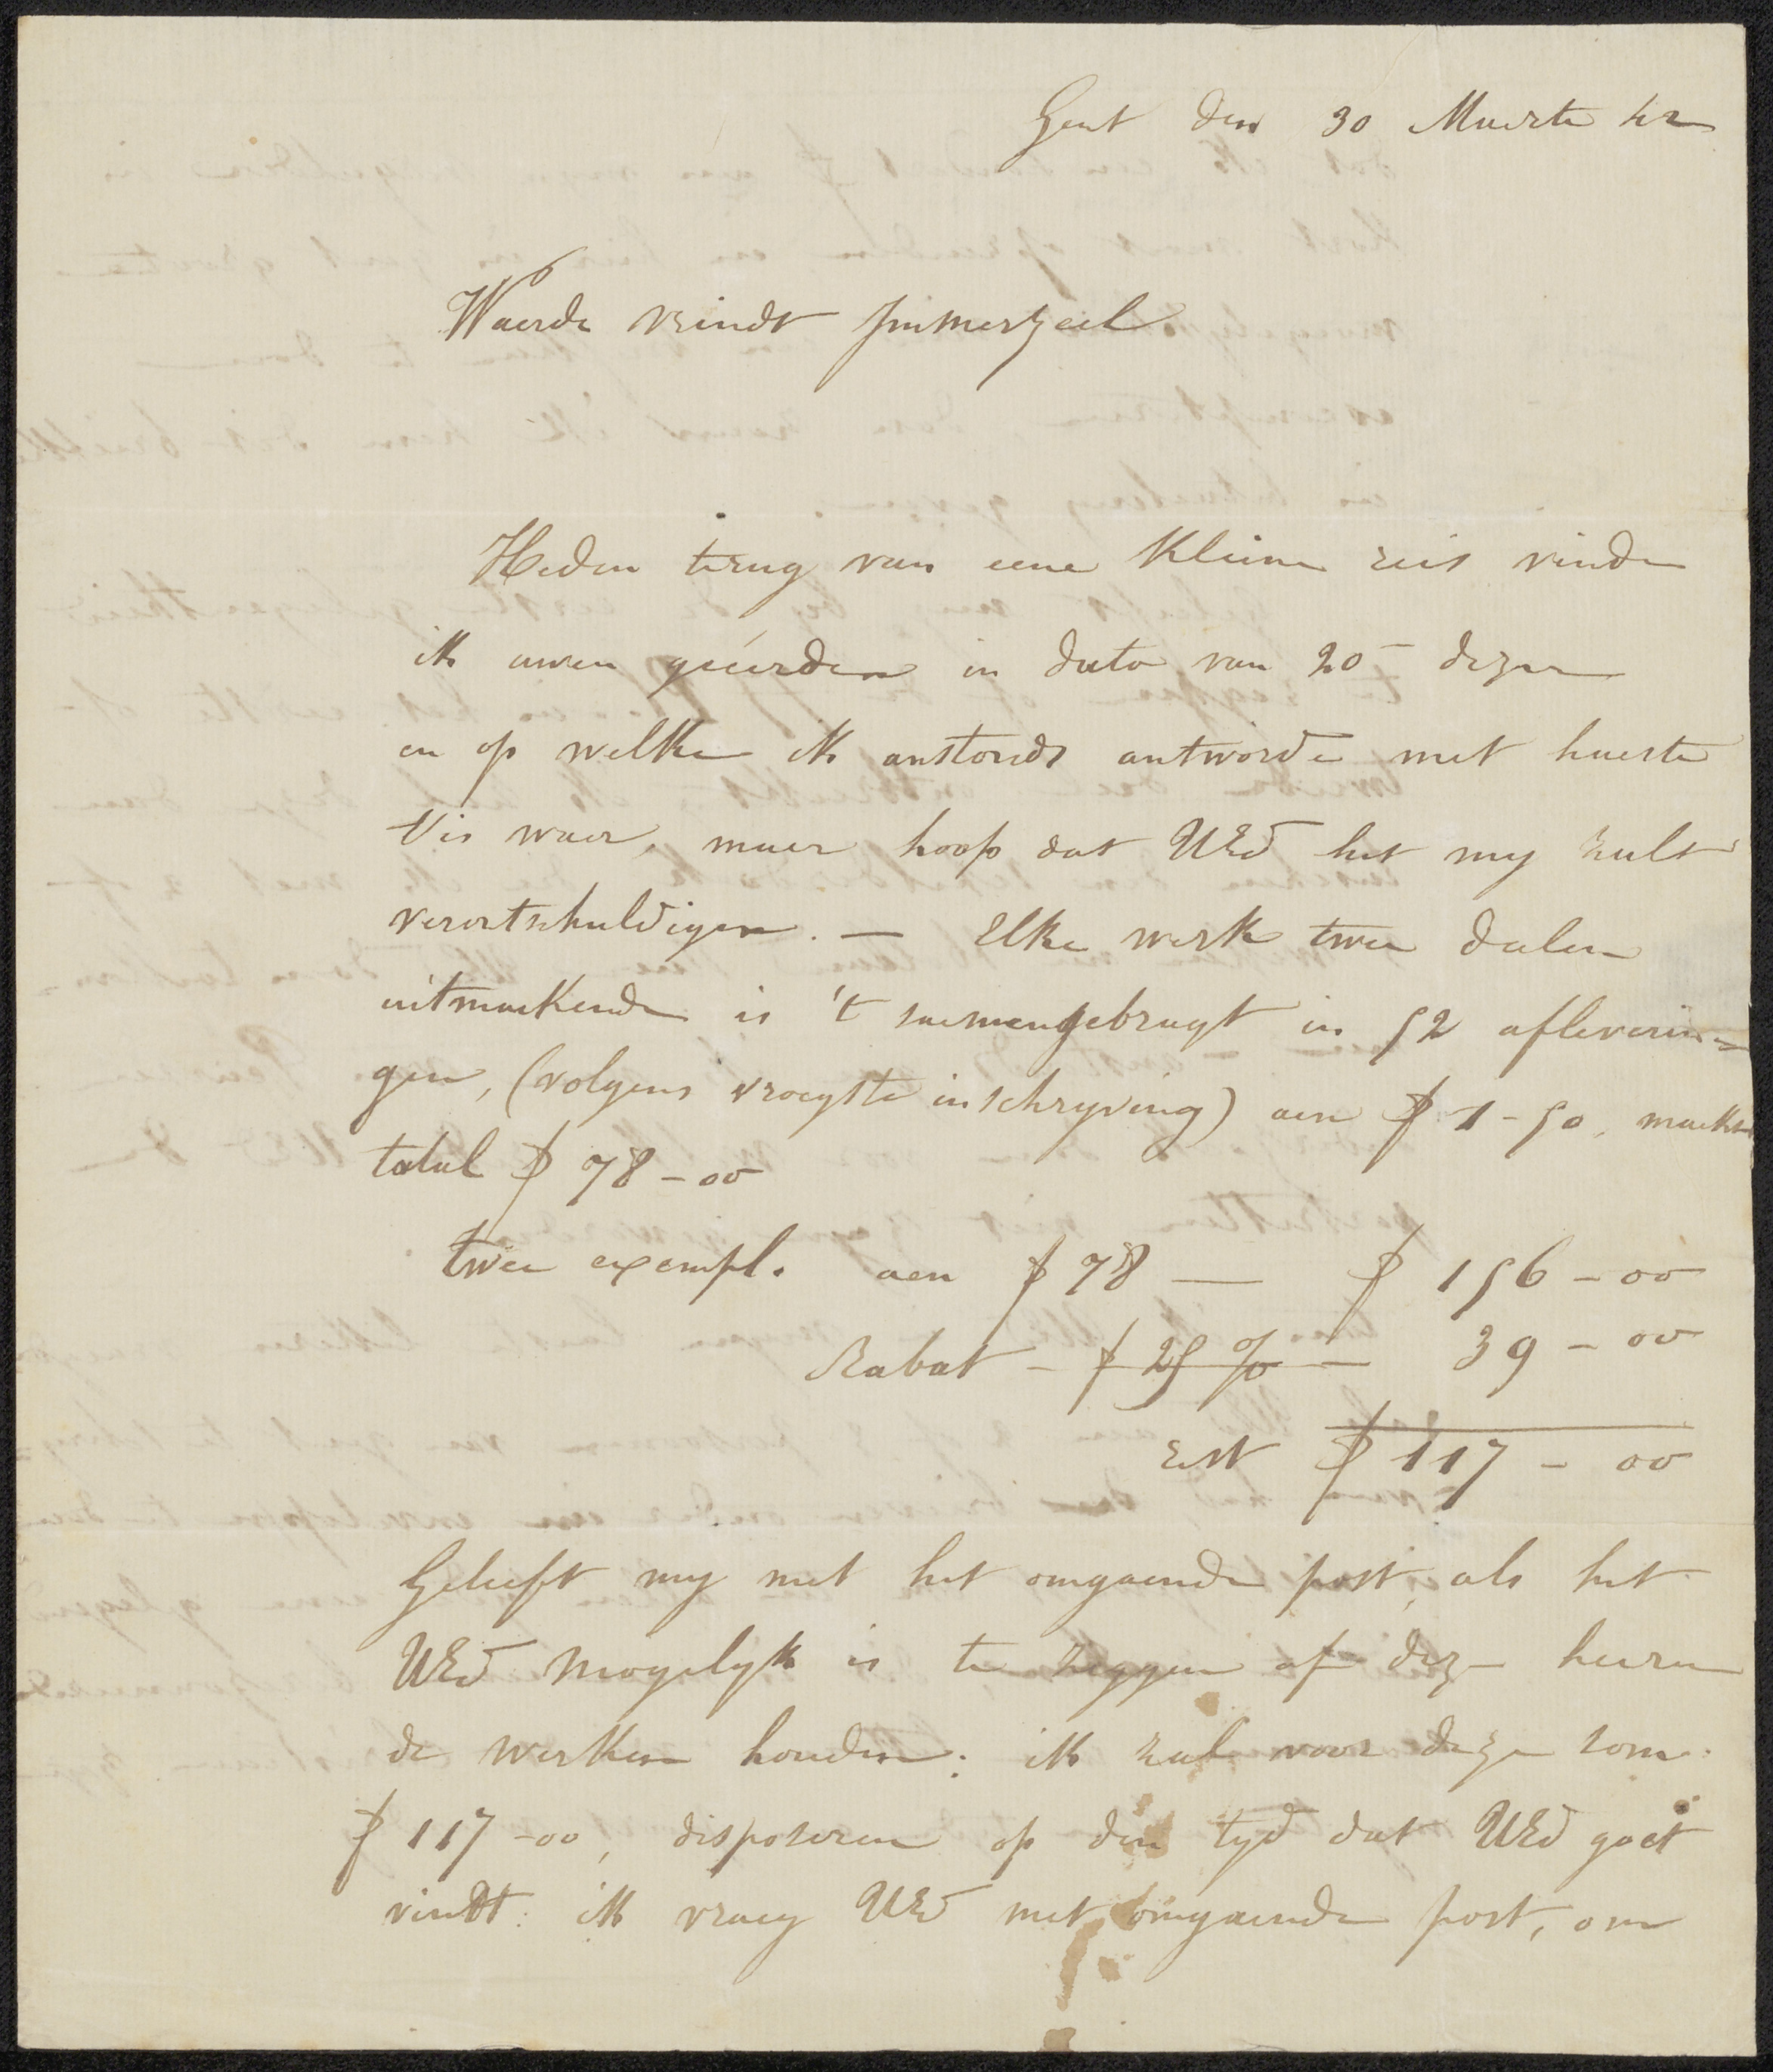 Gent den 30 Maerte 42
Waerde vrindt Immerzeel
Heden terug van eene kleine reis vinde
ik uwen geëerden in dato van 20 dezer
en op welke ik anstonds antworde met haeste
tis waer, maer hoop dat UEd het my zult
verontschuldigen. — Elke werk twee deelen
uitmaekende is 't saemengebragt in 52 afleverin=
gen, (volgens vroegste inschryving) aen ƒ 1-50, maekt
total ƒ 78-00
twee exempl. aen ƒ 78 — ƒ 156-00
Rabat - ƒ 25 % — 39-00
rest ƒ 117-00
Gelieft my met het omgaende post, als het
UEd mogelyk is te zeggen of deze heeren
de werken houden: ik zal voor deze som
ƒ 117-00, disposeren op den tyd dat UEd goet
vindt: ik vraeg UEd met omgaende post, om